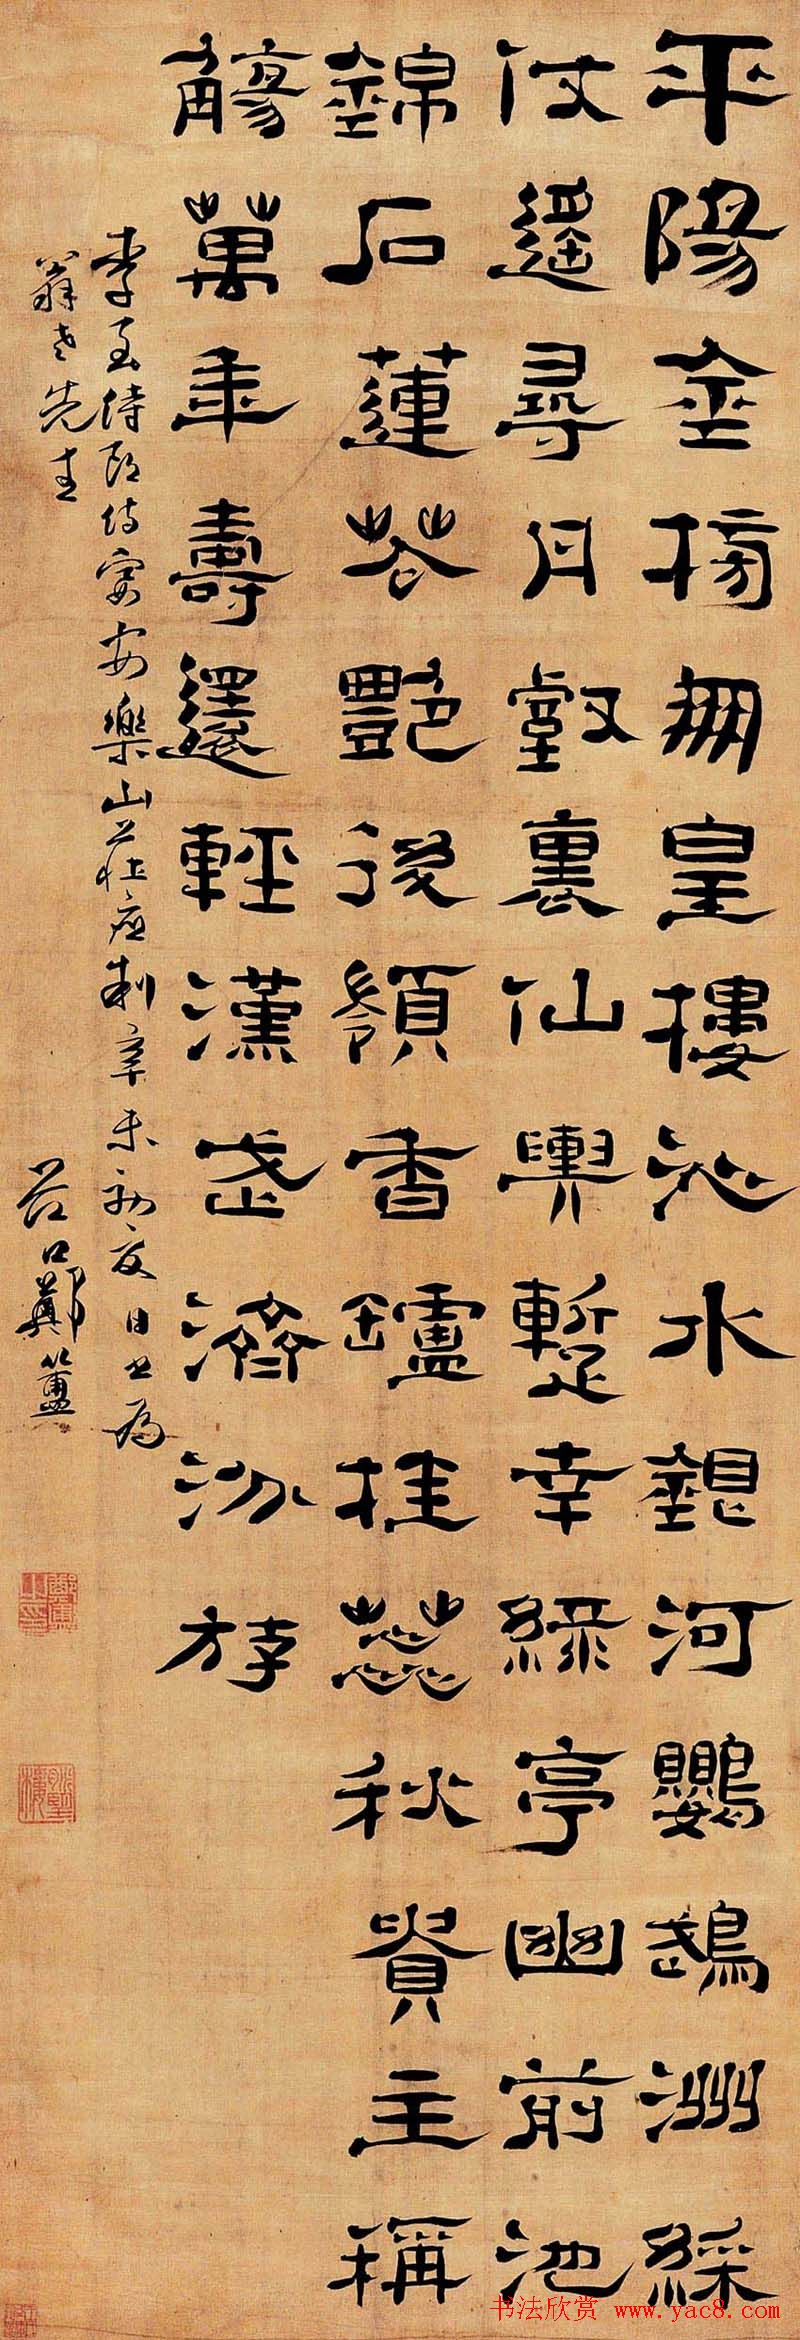 平陽金榜朋皇樓沁水銀河鸚鵡洲綵
仗遥尋丹壑裏仙輿蹔幸綠亭幽前池
錦石蓮花艷後嶺香罏桂蕊秋貴主稱
觴萬年壽還輕漢武濟汾斿
李侍郎侍宴安樂山莊應制辛未初夏日書為
翁老先生
谷口鄭簠
鄭簠之印
书法欣赏 www.yac8.com